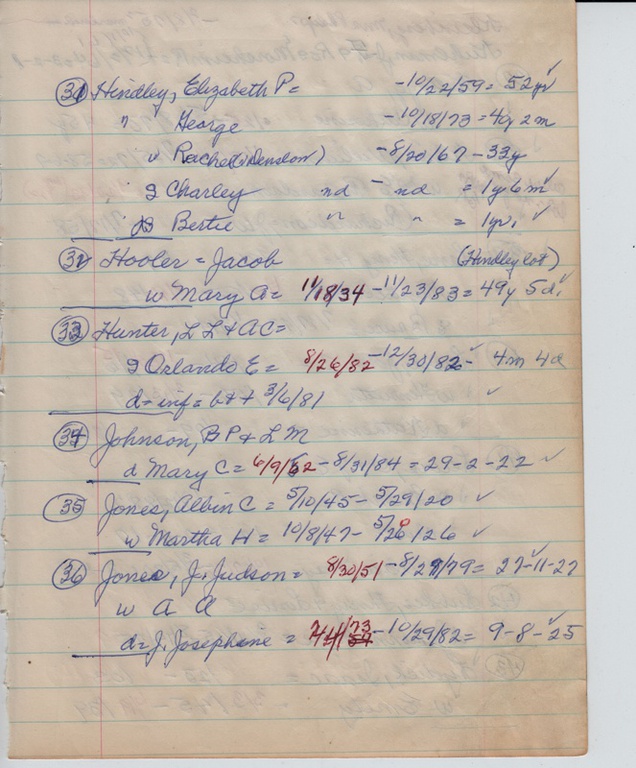 31 Hindley, Elizabeth P = - 10/22/59 = 52 yr ✓
" George - 10/18/73 = 40y 2m
" Rachel (Denslow) - 8/20/67 - 33y
Charley nd - nd = 1y 6m ✓
Bertie " " = 1yr. ✓
32 Hooler = Jacob (Hindley lot)
w Mary A = 11/18/34 - 11/23/83 = 49y 5d. ✓
33 Hunter, L L & A C =
Orlando E = 8/26/82 - 12/30/82 - 4m 4d ✓
d = inf = b & 3/6/81 ✓
34 Johnson, B P & L M
d Mary C = 6/9/52 - 8/31/84 = 29-2-22 ✓
35 Jones, Albin C = 5/10/45 - 5/29/20 ✓
w Martha H = 10/8/47 - 5/26/26 ✓
36 Jones, J. Judson = 8/30/51 - 8/27/79 = 27-11-27 ✓
w A A
d = J. Josephine = 73 - 10/29/82 = 9-8-25 ✓